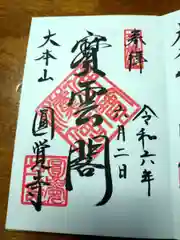 奉拝
令和六年
六月二日
寶雲閣
大本山
圓覚寺